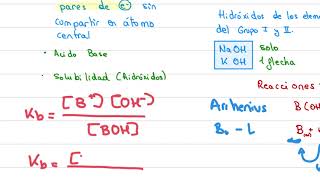 pares de e⁻ sin
compartir en átomo
central
• Acido Base
• Solubilidad (Hidróxidos)
Kb = [B⁺] [OH⁻]
[BOH]
Kb = [
Hidróxidos de los elem
del Grupo I y II.
NaOH solo
KOH 1 flecha
Reacciones
Arrhenius B(OH
B. - L